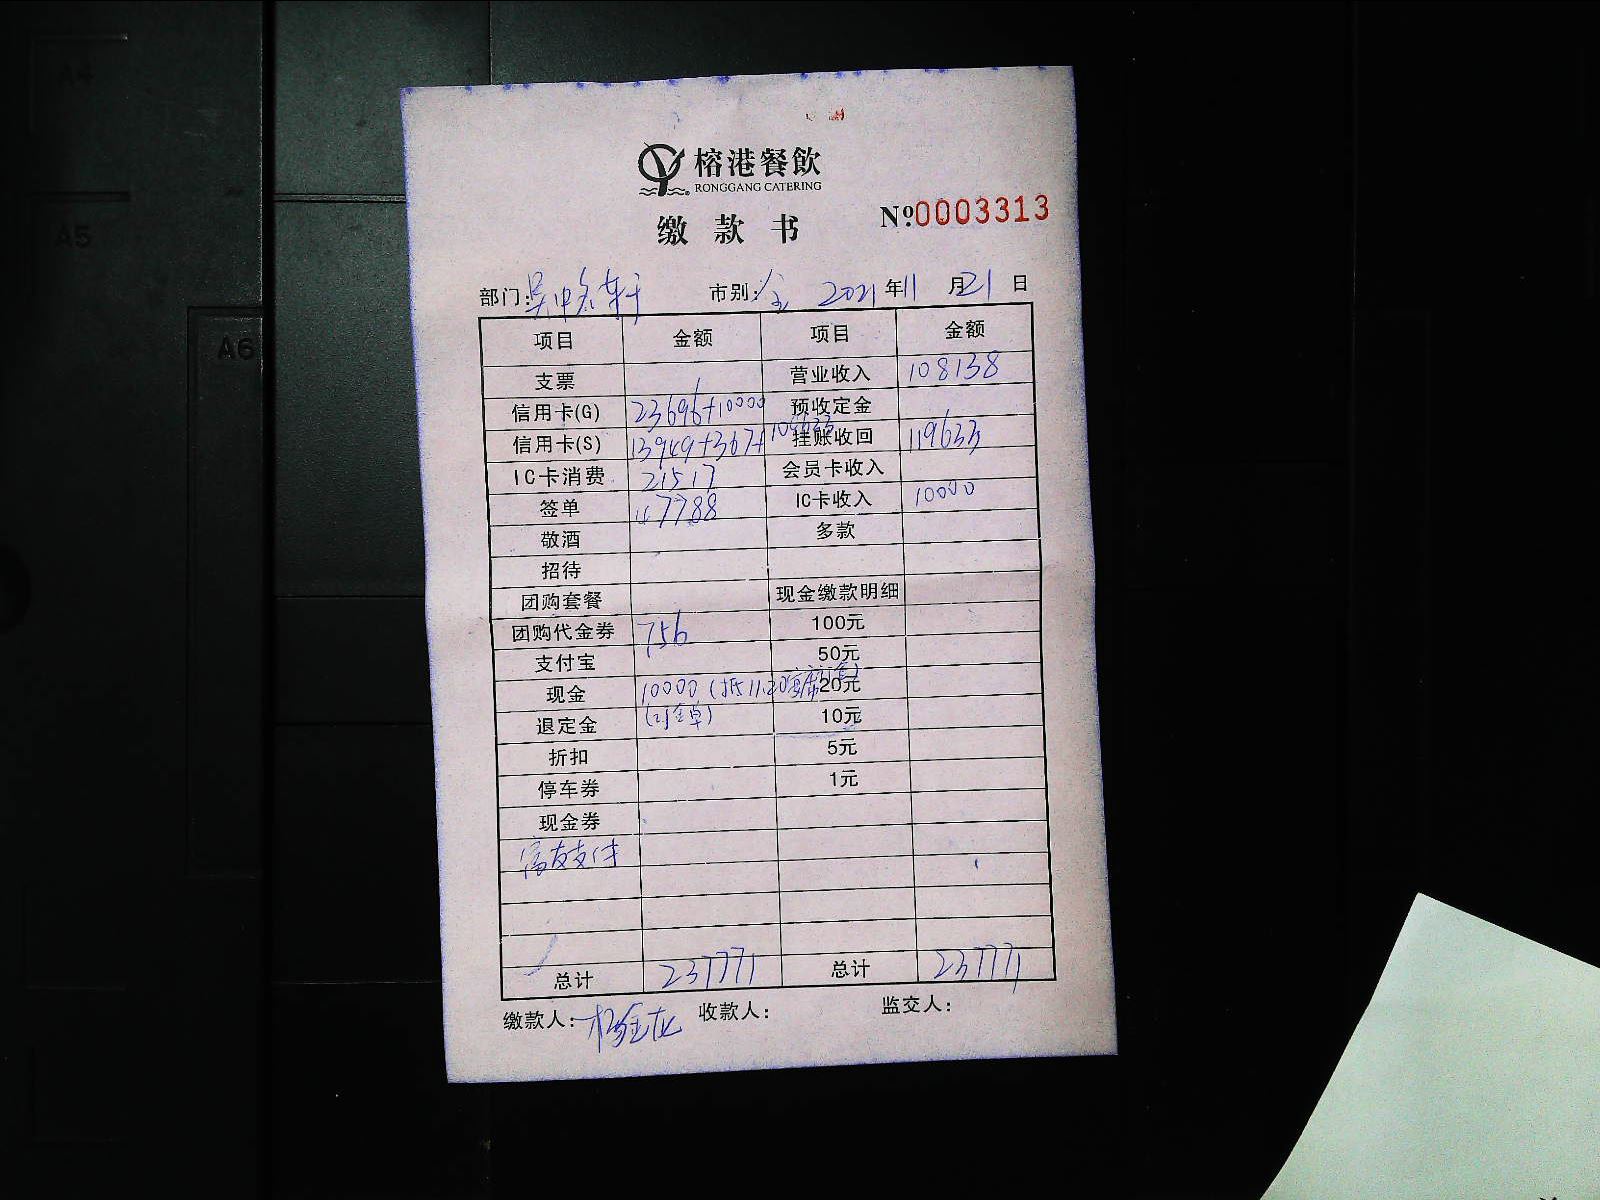 榕港餐飲
RONGGANG CATERING
缴款书
№0003313
部门: 吴中名轩 市别: 全 2021年11月21日
项目 金额 项目 金额
支票 营业收入 108138
信用卡(G) 23696+10000 预收定金
信用卡(S) 13949+367+104633 挂账收回 119633
IC卡消费 21517 会员卡收入
签单 47788 IC卡收入 10000
敬酒 多款
招待
团购套餐 现金缴款明细
团购代金券 756 100元
支付宝 50元
现金 10000 (抵11.20 20元
退定金 (订金单) 10元
折扣 5元
停车券 1元
现金券
富友支付
总计 237771 总计 237771
缴款人: 收款人: 监交人:
A4
A5
A6